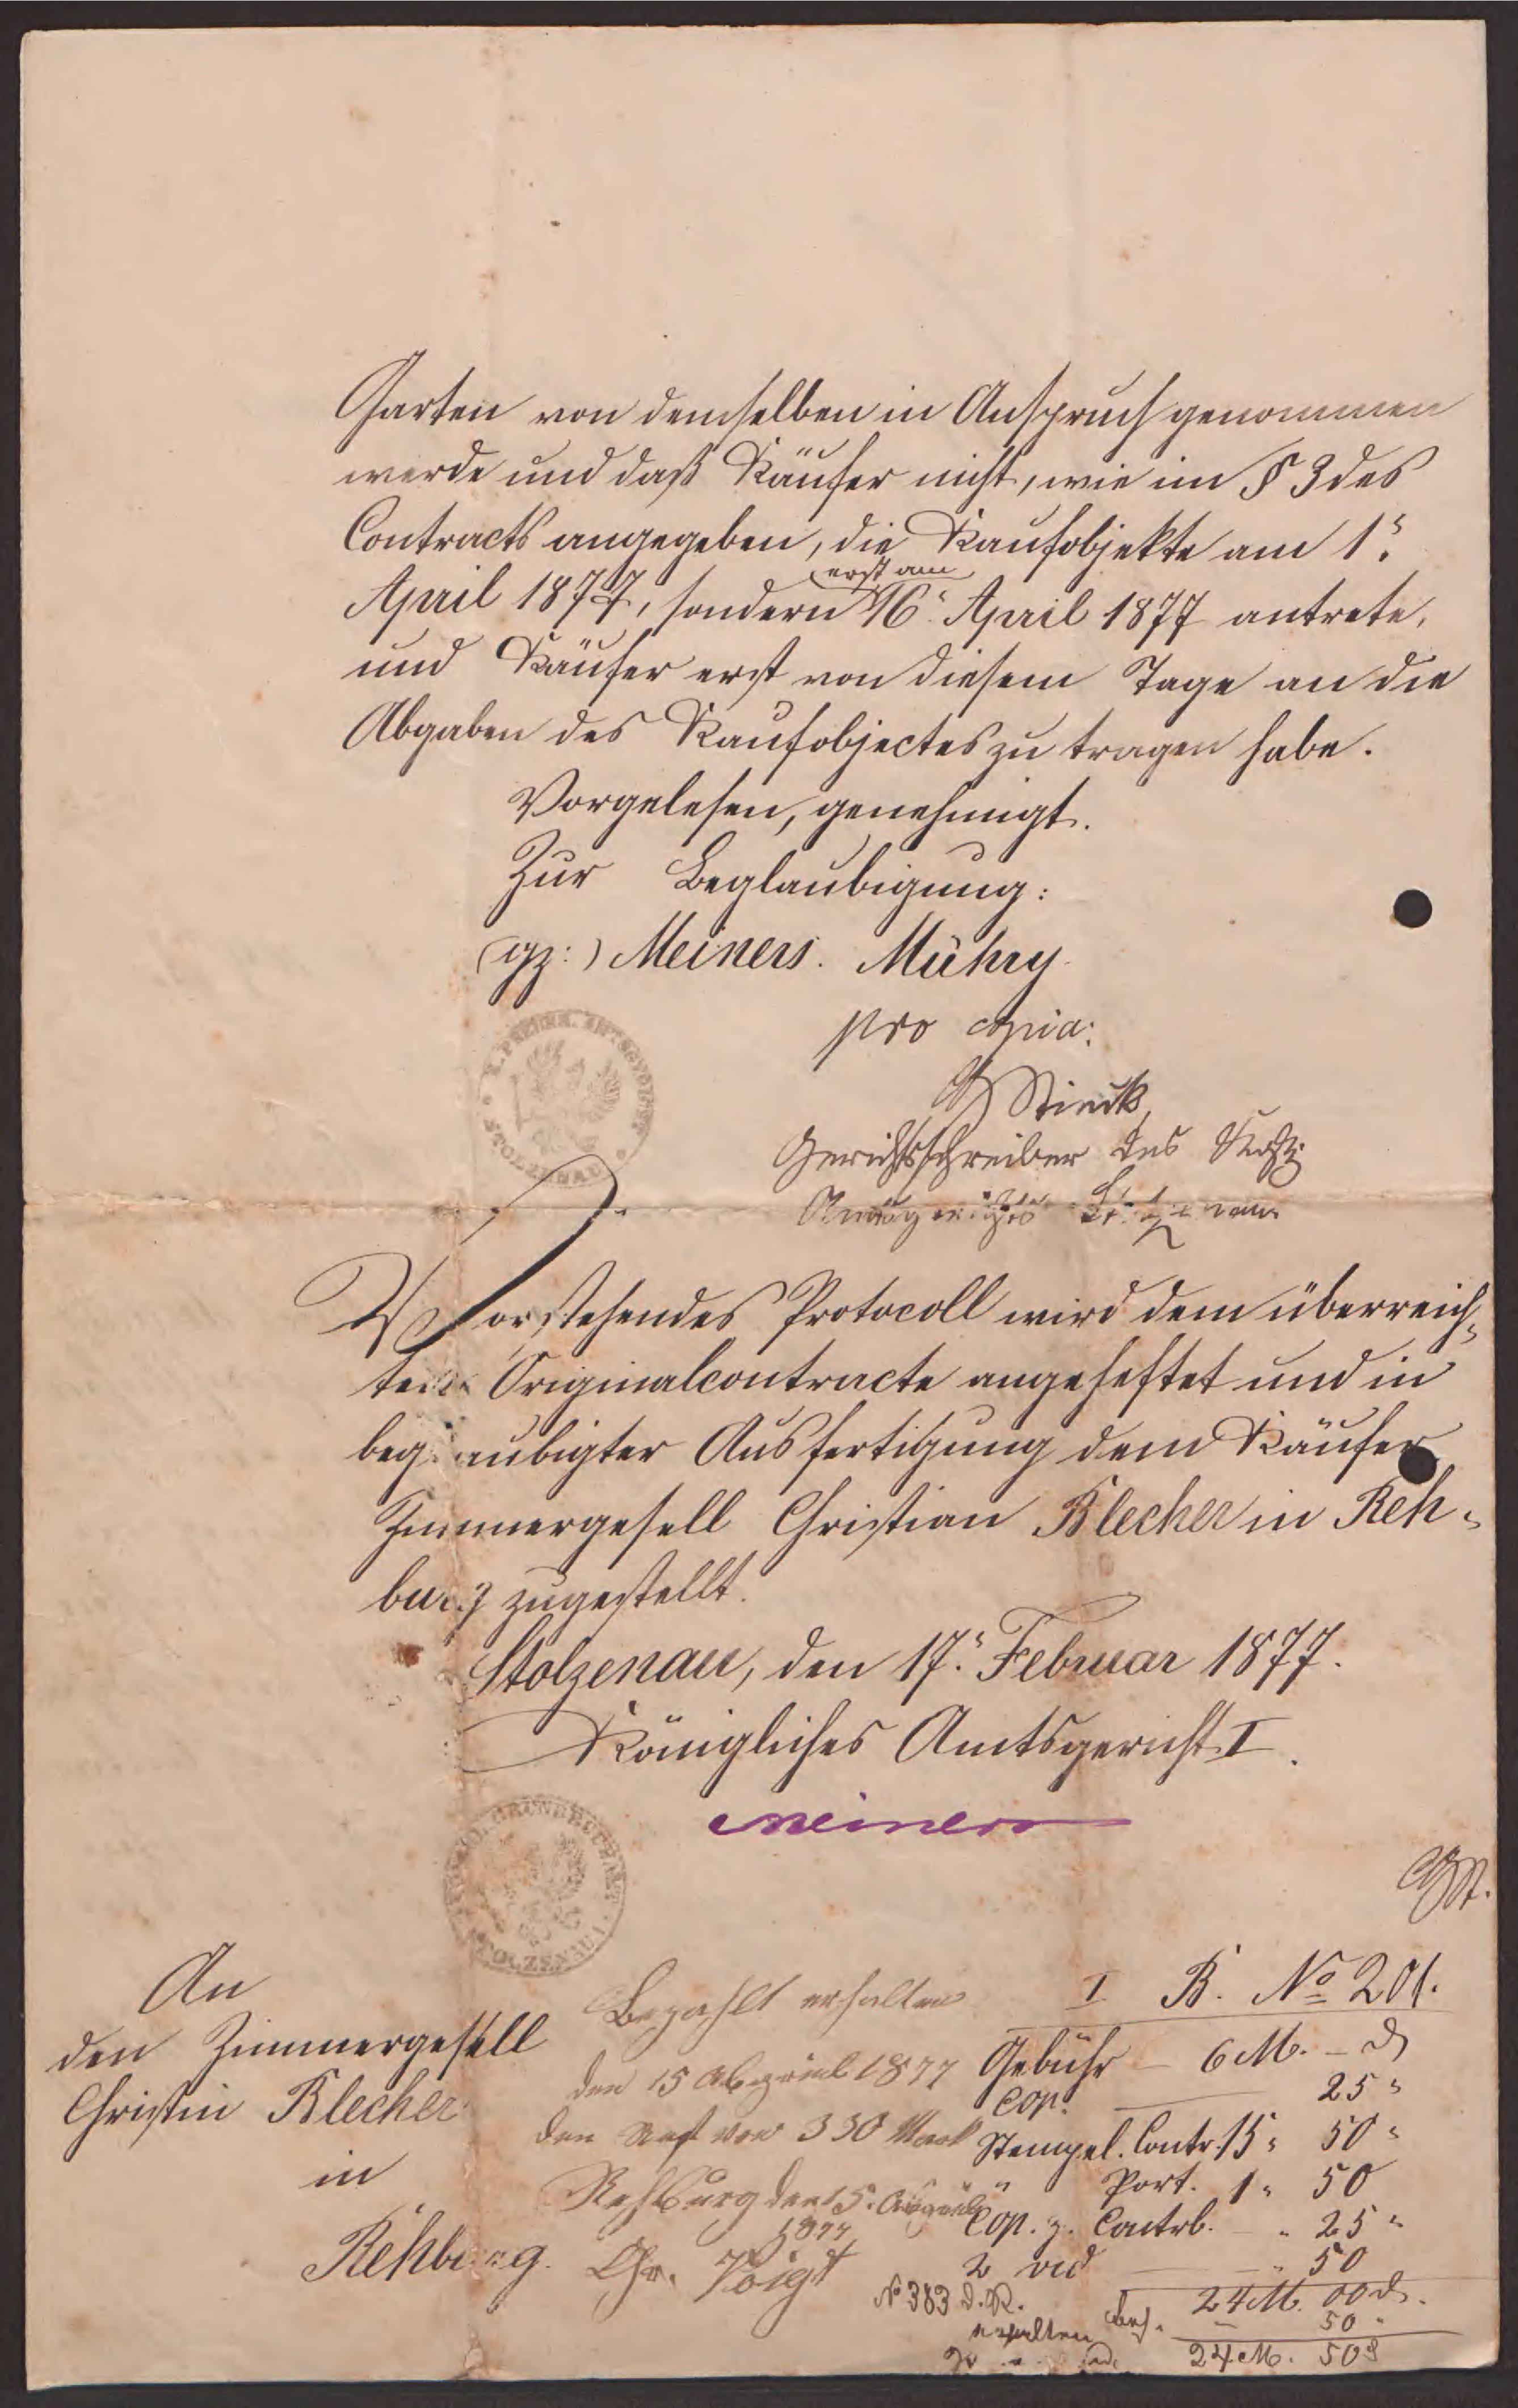 Garten von demselben in Anspruch genommen
werde und daß Käufer nicht, wie im § 3 des
Contracts angegeben, die Kaufobjekte am 1.
April 1877, sondern erst am 16. April 1877 antrete,
und Käufer erst von diesem Tage an die
Abgaben des Kaufobjectes zu tragen habe.
Vorgelesen, genehmigt.
Zur Beglaubigung:
(gz:) Meiners. Mühry.
pro copia:
Gerichtsschreiber des
Amtsgerichts Stolzenau
Vorstehendes Protocoll wird dem überreich-
ten Originalcontracte angeheftet und in
beglaubigter Ausfertigung dem Käufer
Zimmergesell Christian Blecher in Reh-
burg zugestellt.
Stolzenau, den 17. Februar 1877.
Königliches Amtsgericht I.
Meiners
An
den Zimmergesell
Christin Blecher
in
Rehburg.
Bezahlt erhalten
den 15 1877
den Rest von 330 Mark
Rehburg den 15.
1877
Chr. Voigt
I B. No 201.
Gebühr - 6 M. - d
Cop. 25 "
Stempel. Contr. 15 " 50 "
" Port. 1 " 50
Cop. z. Contrb. - " 25 "
2 vid " 50
24 M. 00 d.
50 "
24 M. 50 d
No 383 d. R.
erhalten